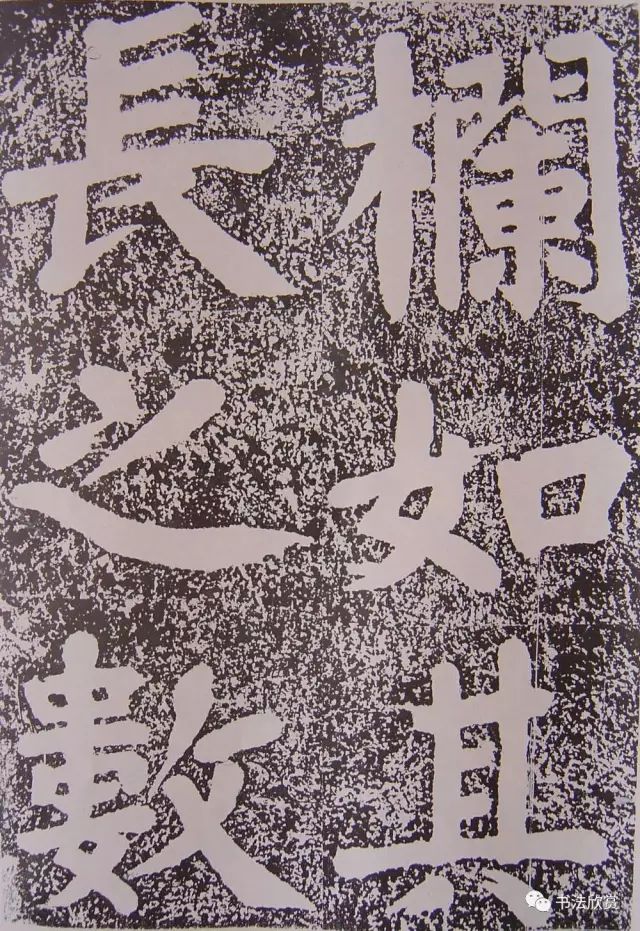 欄如其
長之數
书法欣赏